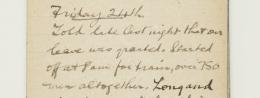 Friday 24th
Told late last night that our
leave was granted. Started
off at 8 am for train, over 750
men altogether. Long and